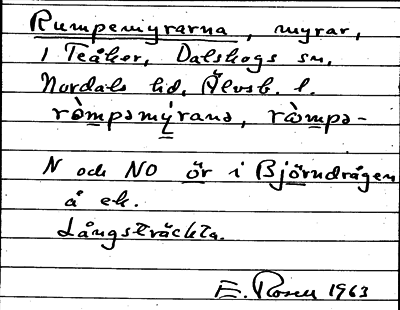 Rumpemyrarna, myrar,
i Teåker, Dalskogs sn,
Nordals hd, Älvsb. l.
ròmpəmýrana, ròmpə-
N och NO ör i Björndrågen
å ek.
Långsträckta.
E. Rosen 1963